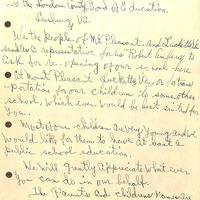 To the Loudoun County Board of Education.
Leesburg Va.
We the people of Mt Pleasant. And Lucketts Va
send as a representative for us Robert to
ask for re-opening of our school here
at Mount Pleasant Lucketts Va, or trans
portation for our children to some other
school, which ever would be best suited for
you.
Most of our children are very young and we
would like for them to have at least a
public school education.
We will greatly appreciate what ever
you can do in our behalf.
The Parents and childrens names are